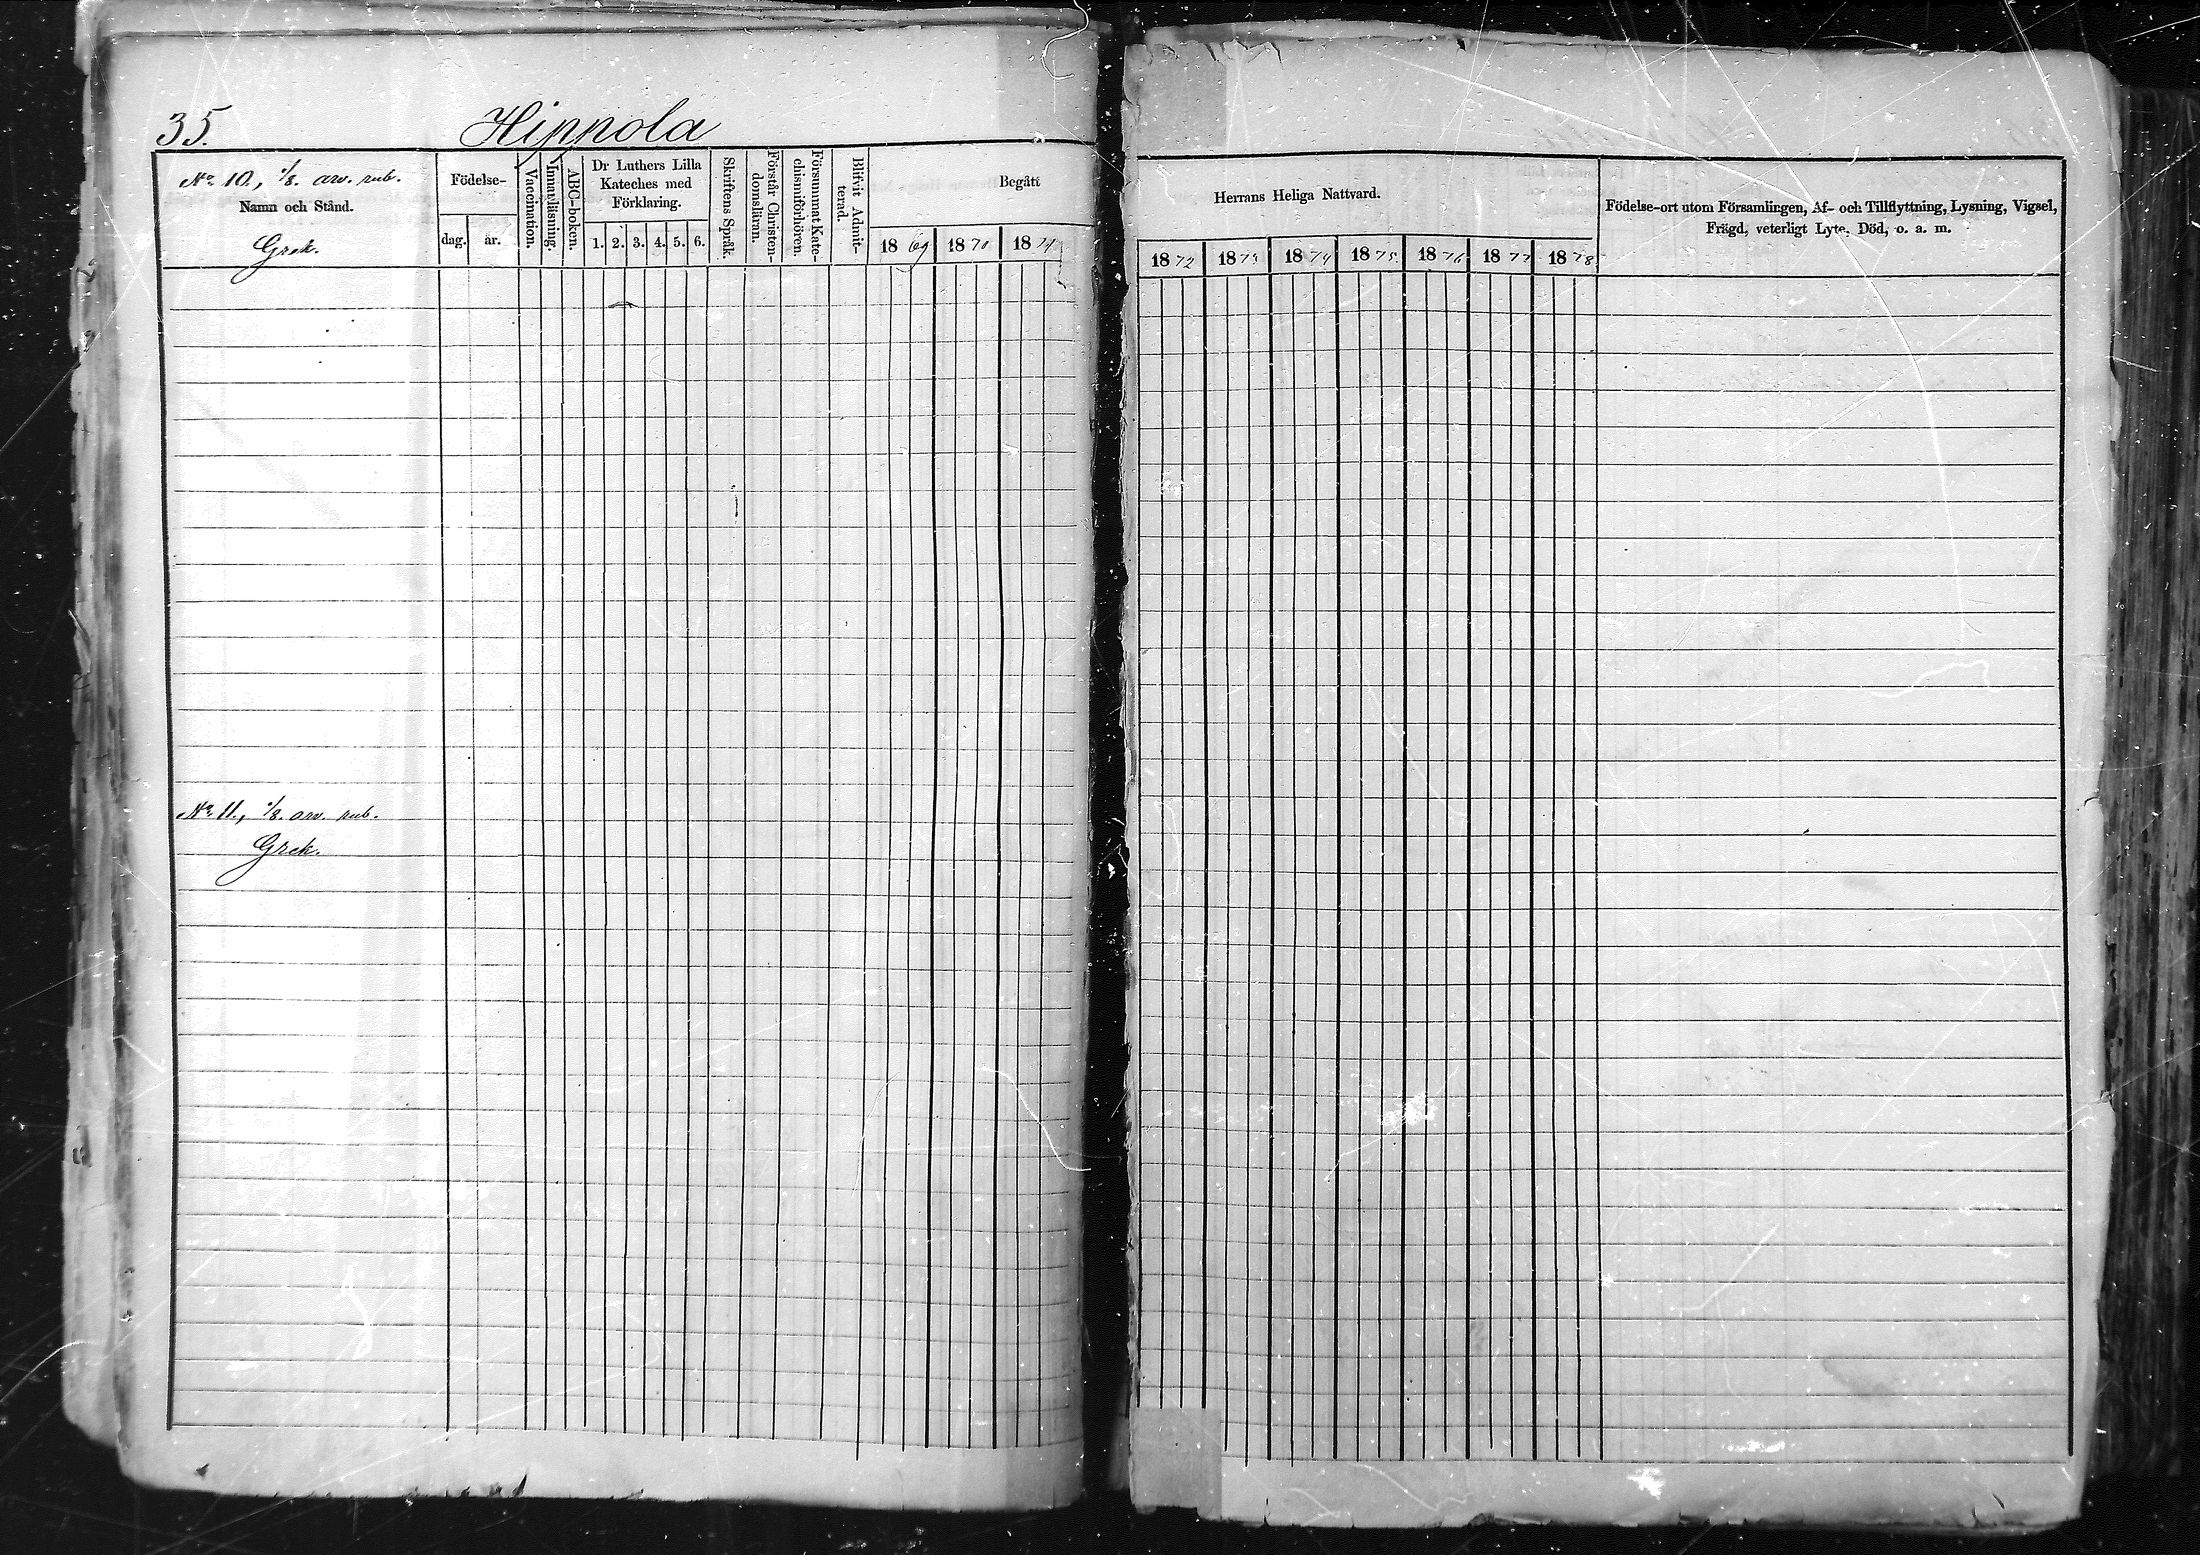 35.
Hippola
No 10., 1/8. arv. rub.
Namn och Stånd.
Grek.
Födelse-
dag. år.
Vaccination.
Innanläsning.
ABC-boken.
Dr Luthers Lilla
Kateches med
Förklaring.
1. 2. 3. 4. 5. 6.
Skriftens Språk.
Förstår Christen-
domsläran.
Försummat Kate-
chismiförhören.
Blifvit Admit-
terad.
Begått
1869 1870 1871
Herrans Heliga Nattvard.
1872 1873 1874 1875 1876 1877 1878
Födelse-ort utom Församlingen, Af- och Tillflyttning, Lysning, Vigsel,
Frägd, veterligt Lyte, Död, o. a. m.
No 11., 1/8. arv. rub.
Grek.